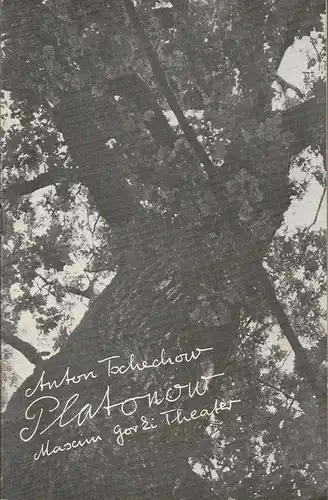 Anton Tschechow
Platonow
Maxim Gorki Theater